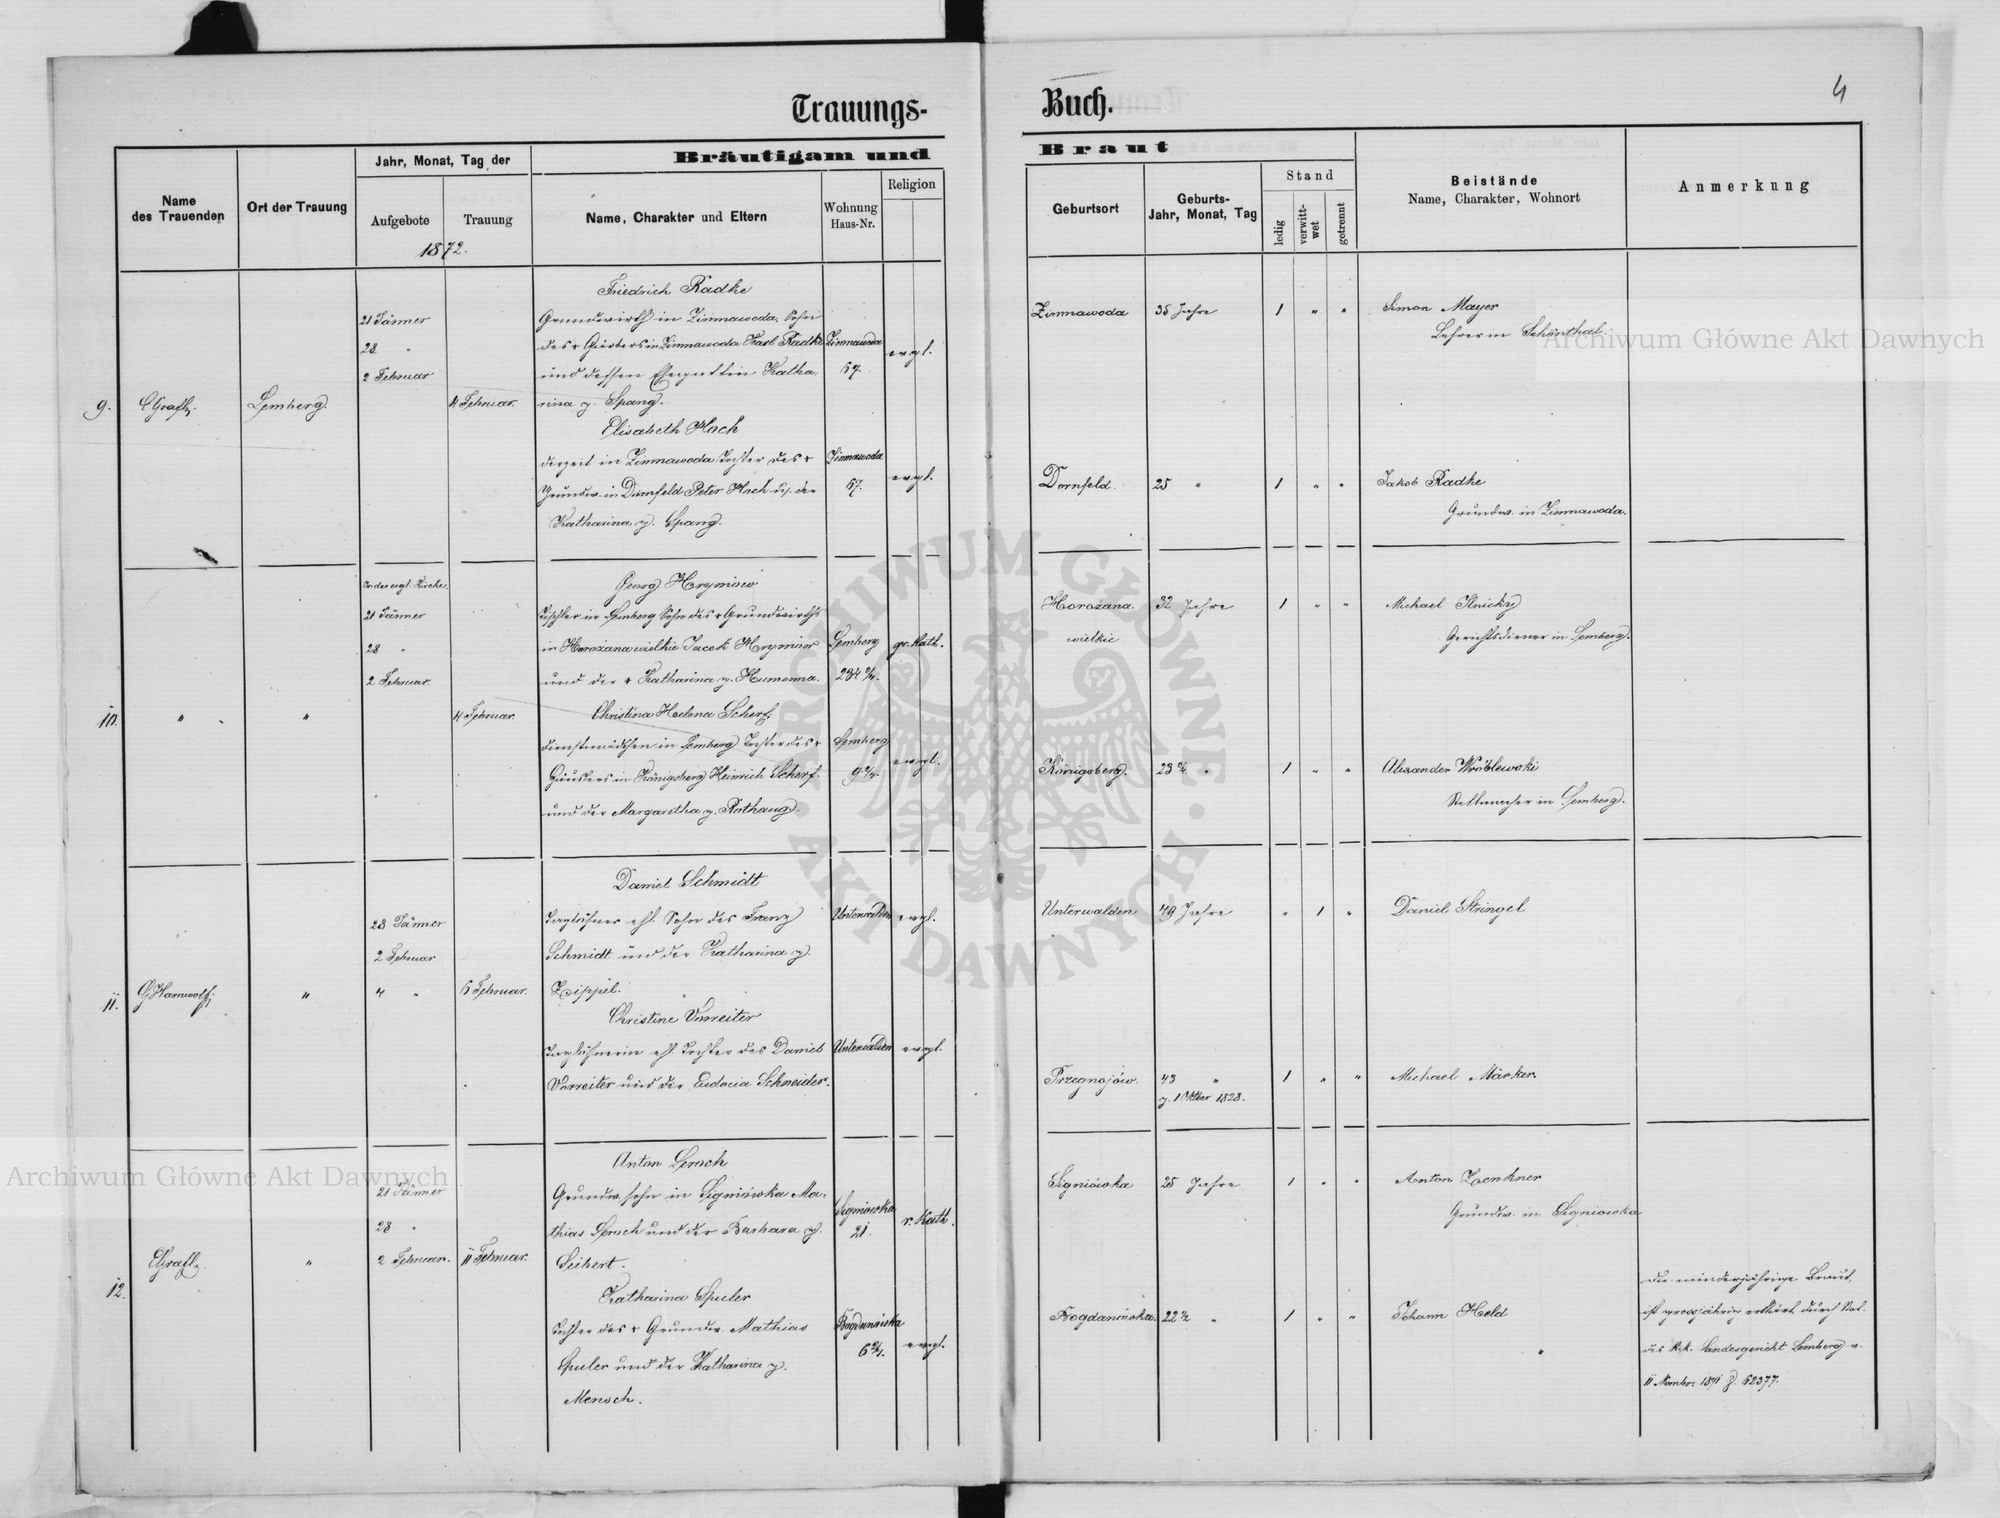 4
Trauungs-Buch.
Name des Trauenden
Ort der Trauung
Jahr, Monat, Tag der
Aufgebote
Trauung
1872.
Bräutigam und Braut
Name, Charakter und Eltern
Wohnung Haus-Nr.
Religion
Geburtsort
Geburts-Jahr, Monat, Tag
Stand
ledig
verwittwet
getrennt
Beistände
Name, Charakter, Wohnort
Anmerkung
9.
Lemberg.
21 Jänner
28 "
2 Februar
4 Februar.
Friedrich Radke
Grundwirth in Zimnawoda, Sohn
des + in Zimnawoda Karl Radke
und dessen Ehegattin Katha-
rina g. Spang.
Zimnawoda
67.
evgl.
Zimnawoda
35 Jahre
1 " "
Simon Mayer
Lehrer in Schönthal.
Elisabeth Hoch
derzeit in Zimnawoda Tochter des +
Grundw. in Dornfeld Peter Hoch u. der
Katharina g. Spang.
Zimnawoda
67.
evgl.
Dornfeld.
25 "
1 " "
Jakob Radke
Grundw. in Zimnawoda.
10.
" "
"
In der evgl. Kirche.
21 Jänner
28 "
2 Februar.
4 Februar.
Georg Hryniow
Tischler in Lemberg Sohn des + Grundwirths
in Horożana wielkie Jacek Hryniow
und der + Katharina g. Humenna.
Lemberg
234 2/4.
gr. Kath.
Horożana.
wielkie
32 Jahre
1 " "
Michael
Gerichtsdiener in Lemberg.
Christina Helena Scherf,
Dienstmädchen in Lemberg Tochter des +
Häuslers in Königsberg Heinrich Scherf.
und der Margaretha g. Rothaug.
Lemberg
9 2/4.
evgl.
Königsberg.
23 "
1 " "
Alexander Wróblewski
Stellmacher in Lemberg.
11.
"
28 Jänner
2 Februar
4 "
6 Februar.
Daniel Schmidt
Taglöhner ehl. Sohn des Franz
Schmidt und der Katharina g.
Zippel.
Unterwalden
evgl.
Unterwalden
49 Jahre
" 1 "
Daniel Stringel
Christine Vorreiter
Taglöhnerin ehl. Tochter des Daniel
Vorreiter und der Eudocia Schneider.
Unterwalden
evgl.
Przegnojów.
43 "
g. 1 Oktber 1828.
1 " "
Michael Märker.
12.
"
21 Jänner
28 "
2 Februar.
11 Februar.
Anton Lersch
Grundw. sohn in Signiówka Ma-
thias Lersch und der Barbara g.
Seibert.
Signiówka
21.
r. Kath.
Signiówka
25 Jahre
1 " "
Anton Zenkner
Grundw. in Signiówka
Katharina Spuler
Tochter des + Grundw. Mathias
Spuler und der Katharina g.
Mensch.
Bogdanówka
6 2/4.
evgl.
Bogdanówka.
22 1/2 "
1 " "
Johann Held
"
Die minderjährige Braut,
ist grossjährig erklärt durch
des k.k. Landesgericht Lemberg v.
11 Novmbr: 1871 Z. 62377.
Archiwum Główne Akt Dawnych
Archiwum Główne Akt Dawnych
ARCHIWUM GŁÓWNE · AKT DAWNYCH ·